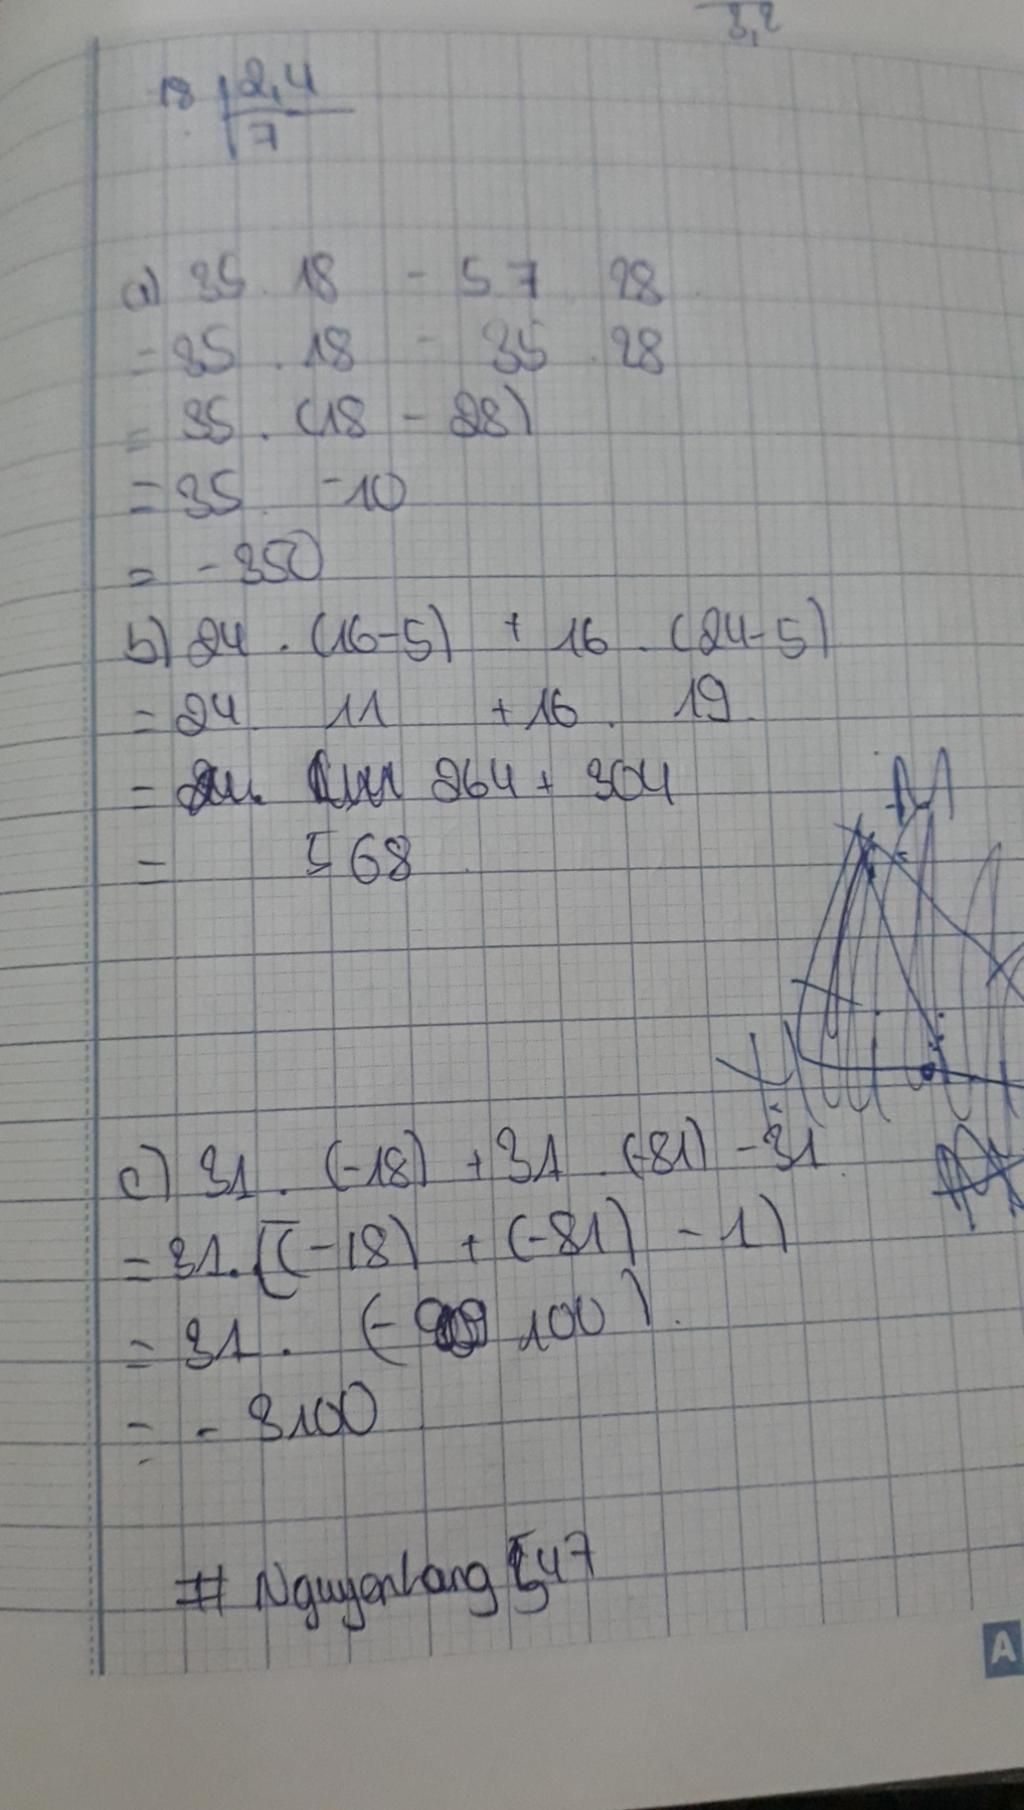 3,2
18 2,4
7
a) 35 . 18 - 5 7 28
= 35 . 18 - 35 . 28
= 35 . (18 - 28)
= 35 . -10
= -350
b) 24 . (16-5) + 16 . (24-5)
= 24 . 11 + 16 . 19
= 264 + 304
= 568
M
c) 31 . (-18) + 31 . (-81) - 31
= 31. [(-18) + (-81) - 1)
= 31 . (- 100).
= - 3100
# Nguyenhang 547
A